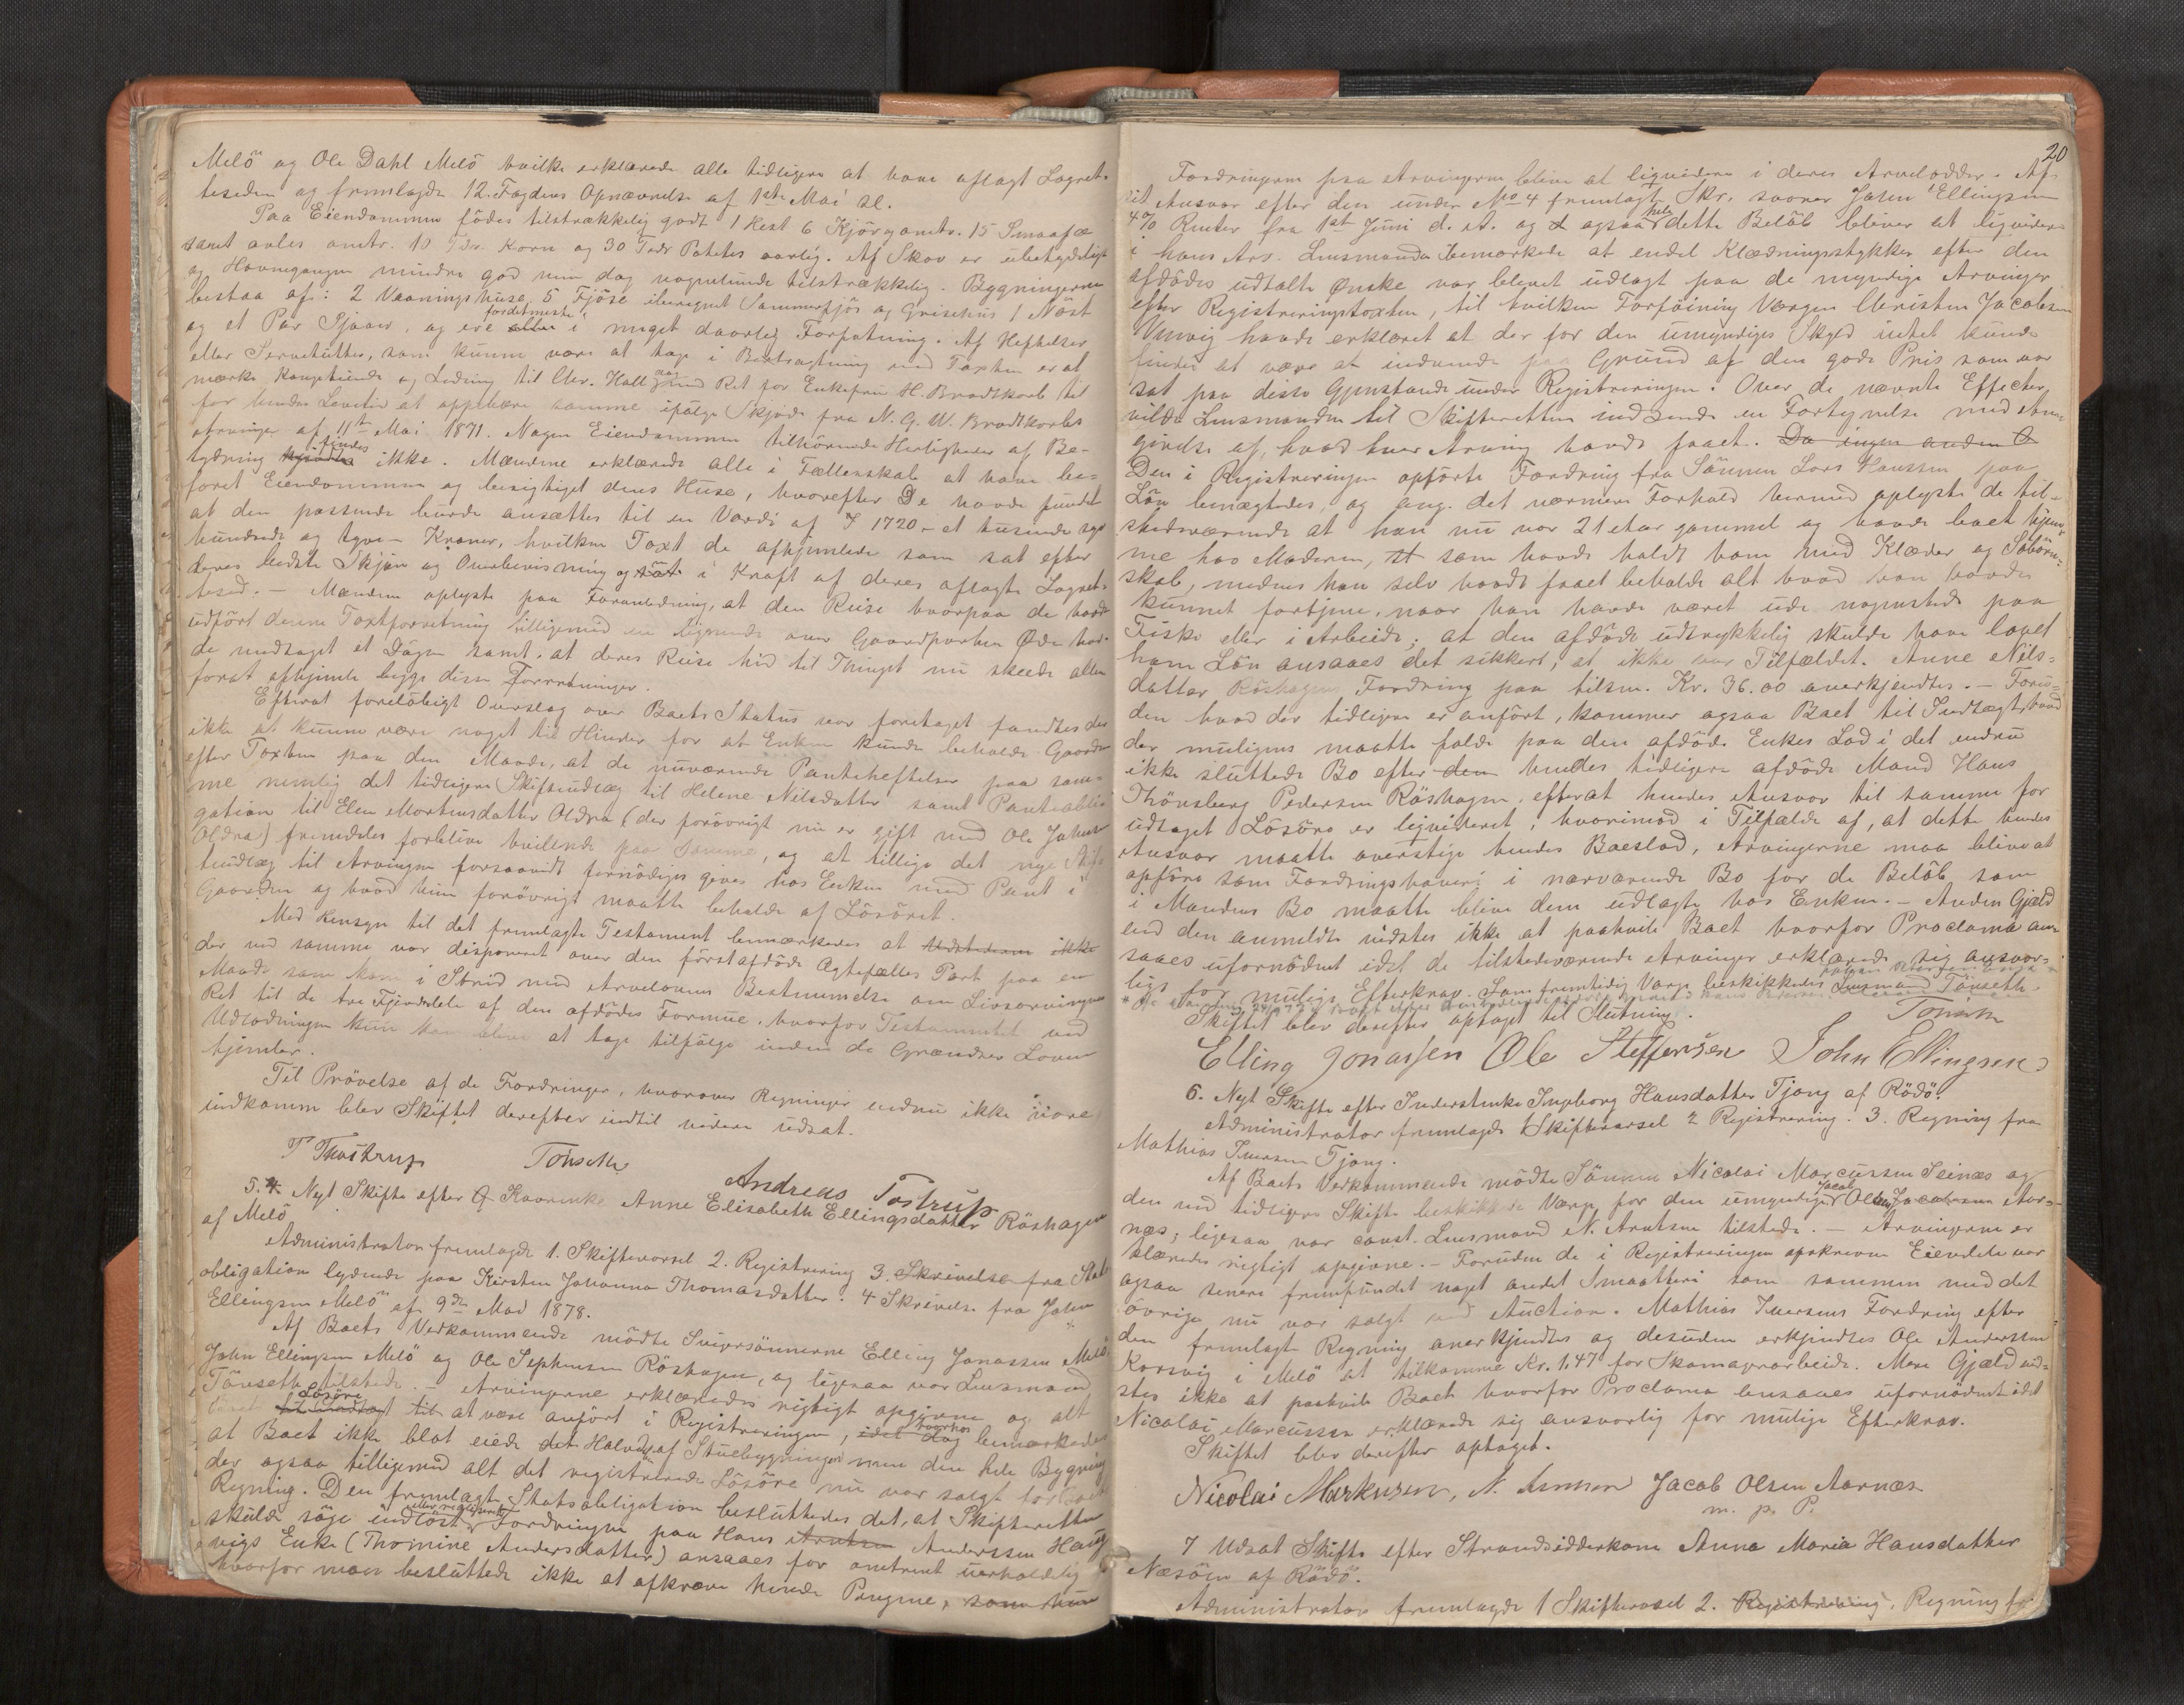 Melö og Ole Dahl Melö hvilke erklærede alle tidligere at have aflagt Lagret-
teseden og fremlagde 12. Fogdens Opnævnelse af 1ste Mai sl.
Paa Eiendommen födes tilstrækkelig godt 1 Hest 6 Kjör og omtr. 15 Smaafæ
samt avles omtr. 10 Tdr. Korn og 30 Tdr Potetes aarlig. Af Skov er ubetydeligt
og Havnegangen mindre god men dog nogenlunde tilstrækkelig. Bygningerne
bestaa af: 2 Vaaningshuse, 5 Fjöse iberegnet Sommerfjös og Grisehus 1 Nöst
og et Par Sjaaer, og ere fordetmeste i meget daarlig Forfatning. Af Heftelser
eller Servitutter, som kunne være at tage i Betragtning ved Taxten er at
mærke Kongetiende og Ledning til Chr. Hall med Ret for Enkefru H. Brodtkorb til
for hendes Levetid at oppebære samme ifölge Skjöde fra N. G. W. Brodtkorbs
Arvinger af 11te Mai 1871. Nogen Eiendommen tilhörende Herligheder af Be-
tydning findes ikke. Mændene erklærede alle i Fællesskab at have be-
faret Eiendommen og besigtiget dens Huse, hvorefter De havde fundet
at den passende burde ansættes til en Værdi af 1720 - et tusende syv
hundrede og tyve - Kroner, hvilken Taxt de afhjemlede som sat efter
deres bedste Skjön og Overbevisning og i Kraft af deres aflagte Lagret-
tesed. - Mændene oplyste paa Foranledning, at den Reise hvorpaa de havde
udfört denne Taxtforretning tilligemed en lignende over Gaardparten Öde hav-
de medtaget et Dögn samt, at deres Reise hid til Thinget nu skeede alene
forat afhjemle begge disse Forretninger.
Efterat foreløbigt Overslag over Boets Status var foretaget fandtes der
ikke at kunne være noget til Hinder for at Enken kunde beholde Gaarden
efter Taxten paa den Maade, at de nuværende Panteheftelser paa sam-
me nemlig det tidligere Skifteudlæg til Helene Nilsdatter samt Pantobli-
gation til Elen Mortensdatter Oldra (der forövrigt nu er gift med Ole Johnsen
Oldra) fremdeles forblive hvilende paa samme, og at tillige det nye Skif-
teudlæg til Arvingen forsaavidt fornödiges gives hos Enken med Pant i
Gaarden og hvad hun forövrigt maatte beholde af Lösöret.
Med Hensyn til det fremlagte Testament bemærkedes at
der ved samme var disponeret over den förstafdöde Ægtefælles Part paa en
Maade som kom i Strid med Arvelovens Bestemmelse om Livsarvingers
Ret til de tre Fjerdedele af den afdödes Formue, hvorfor Testamentet ved
Udlodningen kun kan blive at tage tilfölge inden de Grændser Loven
hjemler.
Til Prövelse af de Fordringer, hvorover Regninger endnu ikke vare
indkomne blev Skiftet derefter indtil videre udsat.
P Thostrup Tönseth
Andreas Tostrup
5. Nyt Skifte efter Kaarenke Anne Elisabeth Ellingsdatter Röshagen
af Melö
Administrator fremlagde 1. Skiftevarsel 2. Registrering 3. Skrivelse fra Stats
obligation lydende paa Kirsten Johanna Thomasdatter. 4 Skrivelse fra John
Ellingsen Melö af 9de Mad 1878.
Af Boets Vedkommende mödte Svigersönnerne Elling Jonassen Melö
John Ellingsen Melö og Ole Stephensen Röshagen, og ligesaa var Lensmand
Tönseth tilstede. - Arvingerne erklæredes rigtigt opgivne og alt
Boet Lösöre til at være anfört i Registreringen, hvorhos bemærkedes
at Boet ikke blot eiede det Halve af Stuebygningen men den hele Bygning
der ogsaa tilligemed alt det registrerede Lösöre nu var solgt for Boets
Regning. Den fremlagte Statsobligation besluttedes det, at Skifteretten
skulde söge indlöst. Fordringen paa Hans Andersen Haug
vigs Enke (Thomine Andersdatter) ansaaes for omtrent uerholdelig
hvorfor man besluttede ikke at afkræve hende Pengene, som hun
20
Fordringerne paa Arvingerne blive at ligvidere i deres Arvelodder. Af
sit Ansvar efter den under No 4 fremlagte Skr. svarer John Ellingsen
4% Renter fra 1st Juni d. A. og ogsaa hele dette Belöb bliver at ligvidere
i hans Arv. Lensmanden bemærkede at endel Klædningsstykker efter den
afdödes udtalte Önske var blevet udlagt paa de myndige Arvinger
efter Registreringstaxten, til hvilken Forföining Værgen Christen Jacobsen
Unvig havde erklæret at der for den umyndiges Skyld intet kunde
findes at være at indvende paa Grund af den gode Pris som var
sat paa disse Gjenstande under Registreringen. Over de nævnte Effecter
vilde Lensmanden til Skifteretten indsende en Fortegnelse med An-
givelse af, hvad hver Arving havde faaet. Da ingen anden G
Den i Registreringen opförte Fordring fra Sönnen Lars Hanssen paa
Lön benægtedes, og ang. det nærmere Forhold hermed oplyste de til-
stedeværende at han nu var 21 Aar gammel og havde boet hjem-
me hos Moderen, som havde holdt ham med Klæder og Söbörn-
skab, medens han selv havde faaet beholde alt hvad han havde
kunnet fortjene, naar han havde været ude nogensteds paa
Fiske eller i Arbeide; at den afdöde udtrykkelig skulde have lovet
ham Lön ansaaes det sikkert, at ikke var Tilfældet. Anne Nils-
datter Röshagens Fordring paa tilsm. Kr. 36.00 anerkjendtes. - Foru-
den hvad der tidligere er anfört, kommer ogsaa Boet til Indtægt, hvad
der muligens maatte falde paa den afdöde Enkes Lod i det endnu
ikke sluttede Bo efter den hendes tidligere afdöde Mand Hans
Thönsberg Pedersen Röshagen, efterat hendes Ansvar til samme for
udtaget Lösöre er ligvideret, hvorimod i Tilfælde af, at dette hendes
Ansvar maatte overstige hendes Boeslod, Arvingerne maa blive at
opföre som Fordringshavere i nærværende Bo for de Belöb som
i Mandens Bo maatte blive dem udlagte hos Enken. - Anden Gjæld
end den anmeldte vidstes ikke at paahvile Boet hvorfor Proclama an-
saaes ufornödent idet de tilstedeværende Arvinger erklærede sig ansvar-
lige for mulige Efterkrav. Som fremtidig Værge beskikkedes Lensmand Tönseth.
Skiftet blev derefter optaget til Slutning.
Tönseth
Elling Jonassen Ole Steffensen John Ellingsen
6. Nyt Skifte efter Inderstenke Ingeborg Hansdatter Tjong af Rödö.
Administrator fremlagde 1 Skiftevarsel 2 Registrering. 3. Regning fra
Mathias Iversen Tjong.
Af Boets Vedkommende mödte Sönnen Nicolai Marcussen Seinæs og
den ved tidligere Skifte beskikkede Værge for den umyndige Jacob Olsen Aar-
næs; ligesaa var const. Lensmand N. Arntsen tilstede. - Arvingerne er
klæredes rigtigt opgivne. - Foruden de i Registreringen opskrevne Eiendele var
ogsaa senere fremfundet noget andet Smaatteri som sammen med det
övrige nu var solgt ved Auction. Mathias Iversens Fordring efter
den fremlagte Regning anerkjendtes og desuden erkjendtes Ole Andersen
Korsvig i Melö at tilkomme Kr. 1.47 for Skomagerarbeide. Mere Gjæld vid-
stes ikke at paahvile Boet hvorfor Proclama ansaaes ufornödent idet
Nicolai Marcussen erklærede sig ansvarlig for mulige Efterkrav.
Skiftet blev derefter optaget.
Nicolai Markusen, N. Arntsen Jacob Olsen Aarnæs
m. p. P.
7 Udsat Skifte efter Strandsidderkone Anna Maria Hansdatter
Næsöen af Rödö.
Administrator fremlagde 1 Skiftevarsel 2. Registrering. Regning fr